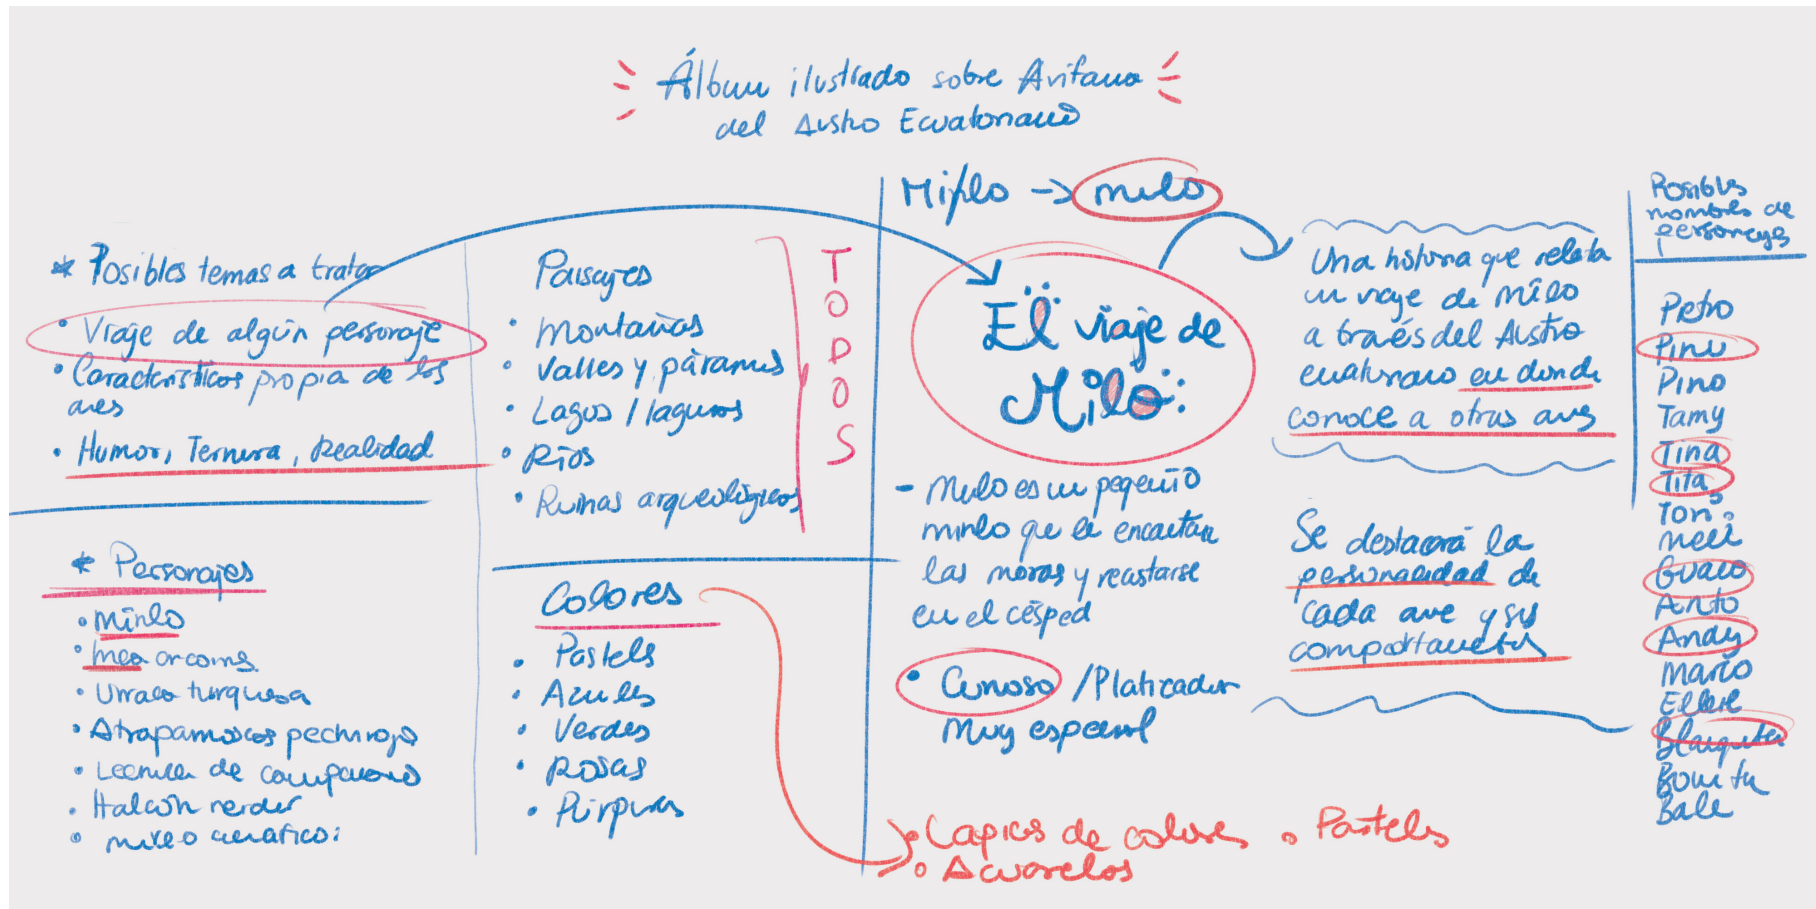 Álbum ilustrado sobre Avifauna
del Austro Ecuatoriano
* Posibles temas a tratar
• Viaje de algún personaje
• Características propia de las
aves
• Humor, Ternura, Realidad
* Personajes
• Mirlo
• Urraca turquesa
• Atrapamoscas pechirojo
• Lechuza de campanario
• Halcón
• Mirlo acuático:
Paisajes
• Montañas
• Valles y páramos
• Lagos / lagunas
• Ríos
• Ruinas arqueológicas
TODOS
Colores
• Pasteles
• Azules
• Verdes
• Rosas
• Púrpuras
Mirlo → milo
El viaje de
Milo:
- Milo es un pequeño
mirlo que le encantan
las moras y recostarse
en el césped
• Curioso / Platicador
Muy especial
• Lapices de colores • Pasteles
• Acuarelas
Una historia que relata
un viaje de Milo
a través del Austro
ecuatoriano en donde
conoce a otras aves
Se destacará la
personalidad de
cada ave y sus
Posibles
nombres de
personajes
Petro
Pino
Tamy
Tina
Tita
Guaco
Andy
Mario
Blanquita
Bonita